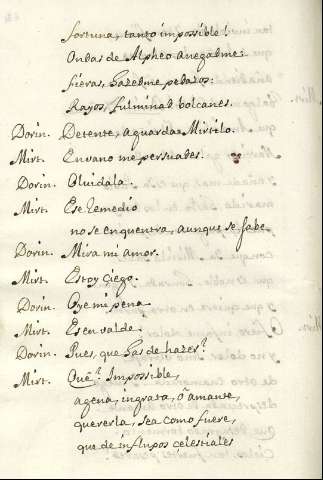 fortuna, tanto impossible!
Ondas de Alpheo anegadme:
fieras, hazedme pedazos:
Rayos, fulminad bolcanes.
Dorin. Detente, aguarda Mirtilo.
Mirt. En vano me persuades.
Dorin. Oluidala.
Mirt. Ese remedio
no se enquentra, aunque se sabe.
Dorin. Mira mi amor.
Mirt. Estoy çiego.
Dorin. Oye mi pena
Mirt. Es en valde.
Dorin. Pues, que has de hazer?
Mirt. Què? Impossible,
agena, ingrata, ò amante,
quererla, sea como fuere,
que de influxos celestiales